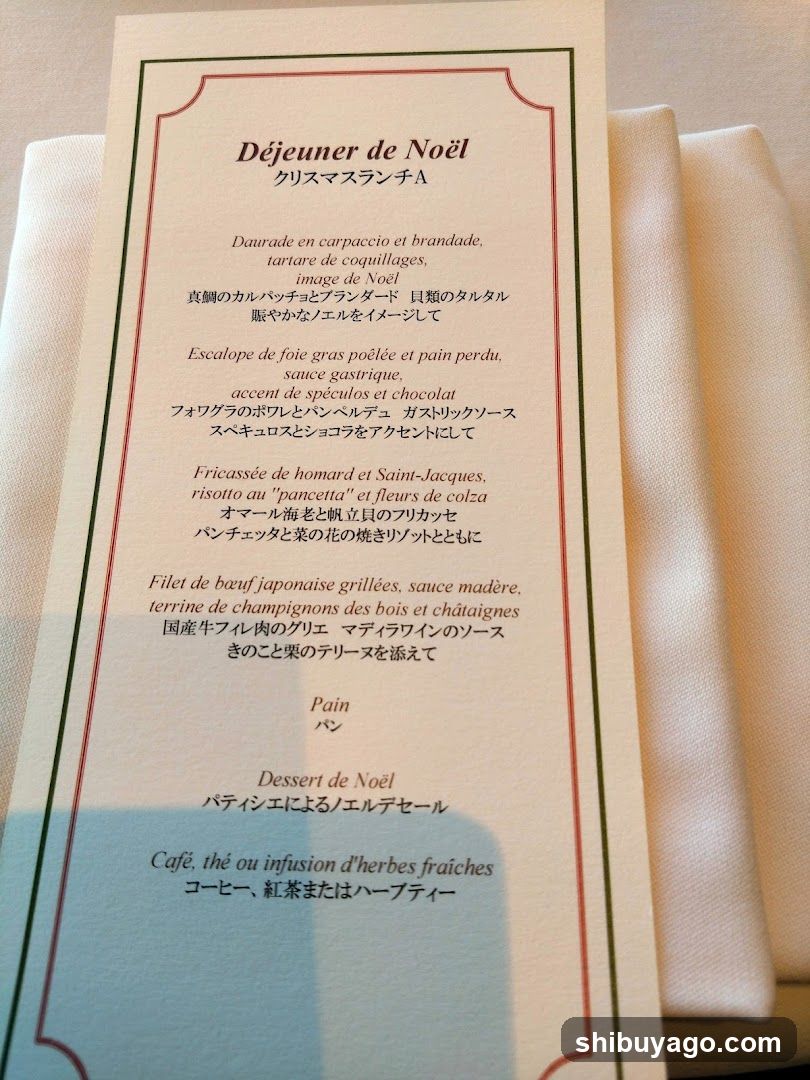 Déjeuner de Noël
クリスマスランチA
Daurade en carpaccio et brandade,
tartare de coquillages,
image de Noël
真鯛のカルパッチョとブランダード 貝類のタルタル
賑やかなノエルをイメージして
Escalope de foie gras poêlée et pain perdu,
sauce gastrique,
accent de spéculos et chocolat
フォワグラのポワレとパンペルデュ ガストリックソース
スペキュロスとショコラをアクセントにして
Fricassée de homard et Saint-Jacques,
risotto au "pancetta" et fleurs de colza
オマール海老と帆立貝のフリカッセ
パンチェッタと菜の花の焼きリゾットとともに
Filet de bœuf japonaise grillées, sauce madère,
terrine de champignons des bois et châtaignes
国産牛フィレ肉のグリエ マディラワインのソース
きのこと栗のテリーヌを添えて
Pain
パン
Dessert de Noël
パティシエによるノエルデセール
Café, thé ou infusion d'herbes fraîches
コーヒー、紅茶またはハーブティー
shibuyago.com